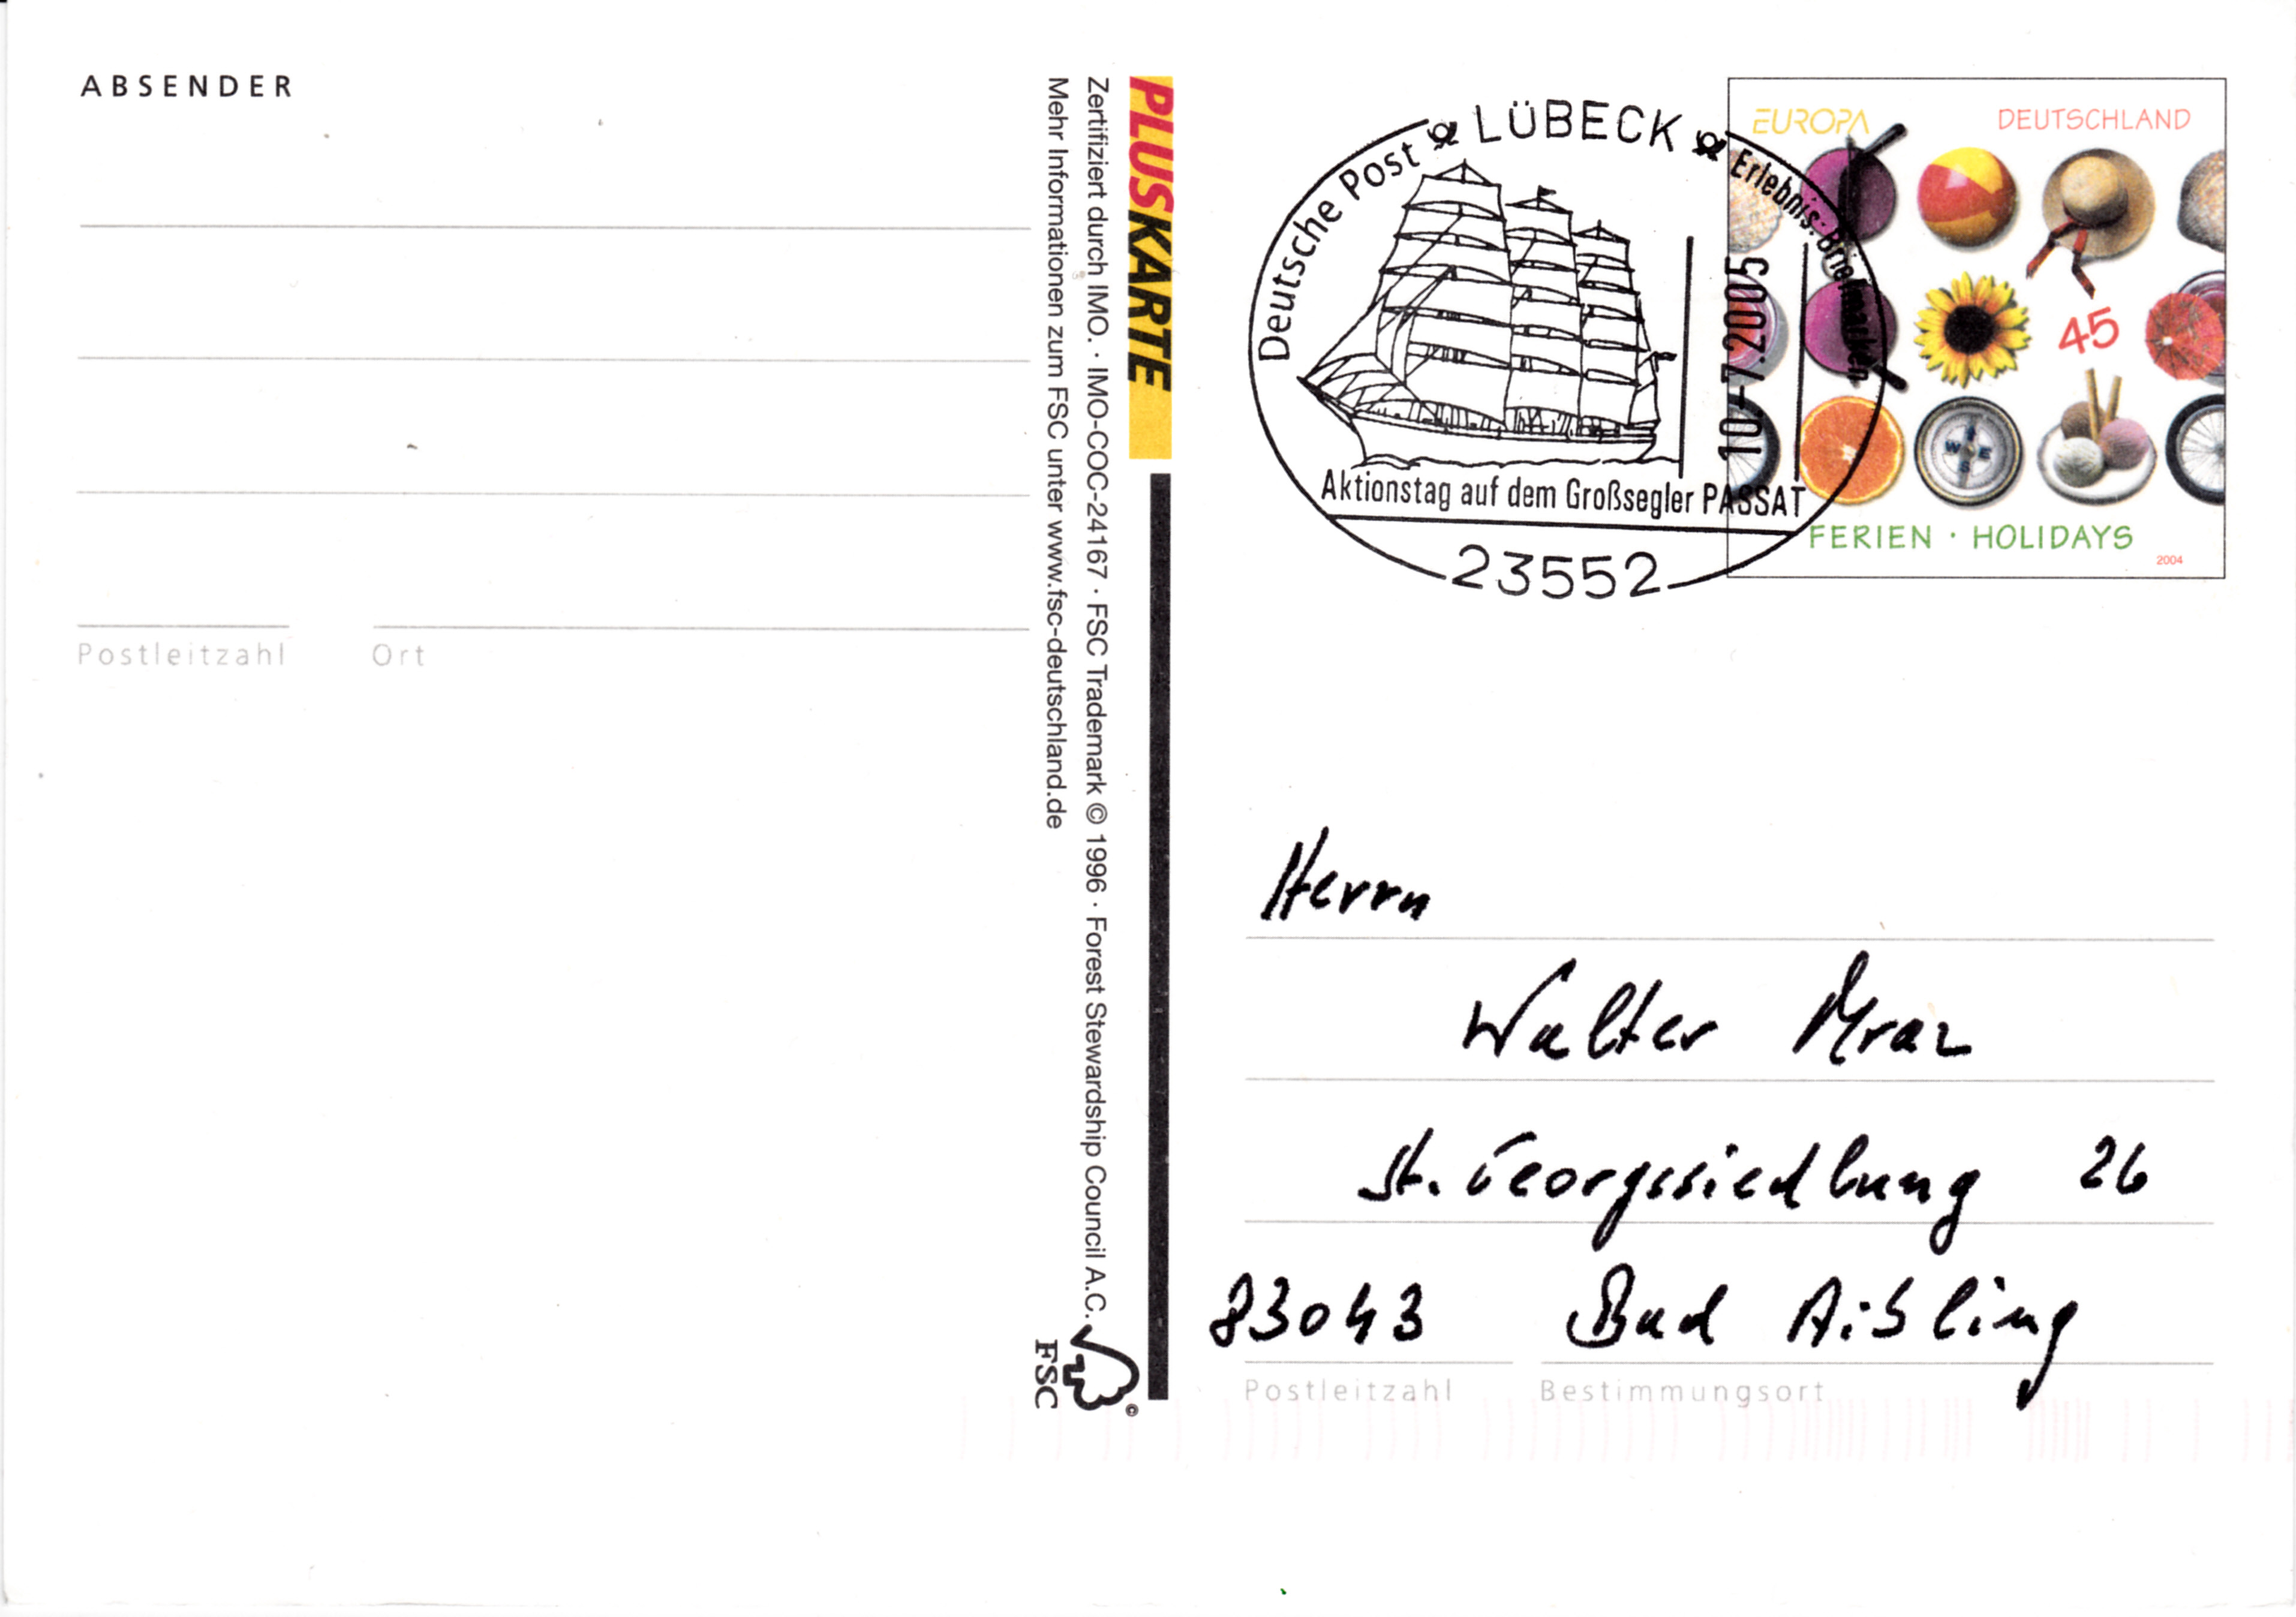 ABSENDER
Postleitzahl Ort
PLUSKARTE
Zertifiziert durch IMO. · IMO-COC-24167 · FSC Trademark © 1996 · Forest Stewardship Council A.C.
Mehr Informationen zum FSC unter www.fsc-deutschland.de
FSC
©
Deutsche Post LÜBECK Erlebnis: Briefmarken
10.-7.2005
Aktionstag auf dem Großsegler PASSAT
23552
EUROPA DEUTSCHLAND
45
W E
S
FERIEN · HOLIDAYS
2004
Herrn
Walter Mraz
St. Georgssiedlung 26
83043 Bad Aibling
Postleitzahl Bestimmungsort